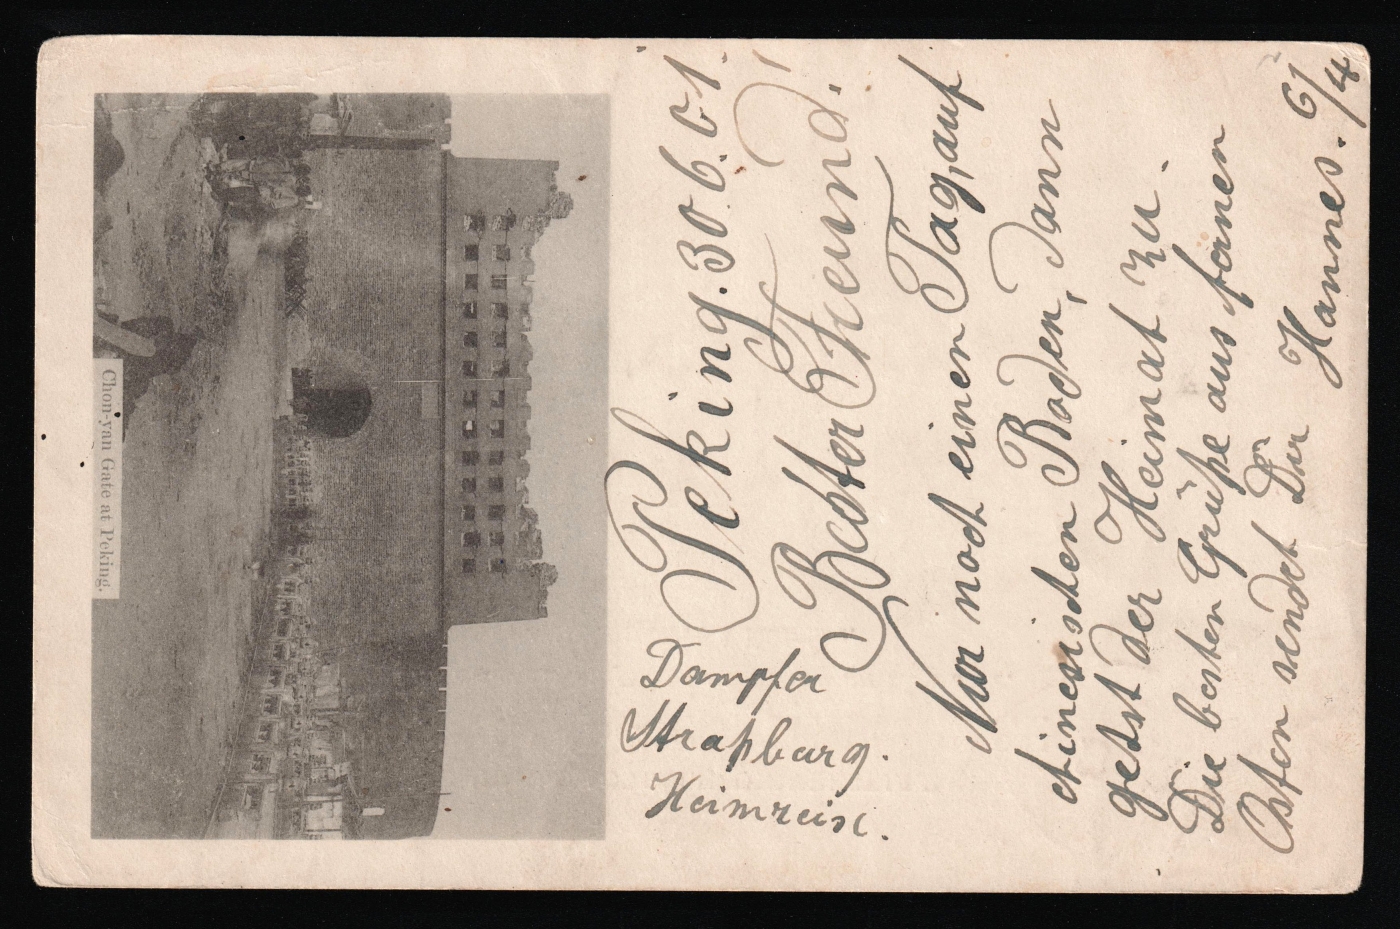 Chon-yan Gate at Peking.
Peking. 30.6.01.
Bester Freund!
Nur noch einen Tag, auf
chinesischen Boden, dann
gehts der Heimat zu.
Die besten Grüße aus fernen
Osten sendet Dir
Hannes. 6/4
Dampfer
Straßburg.
Heimreise.